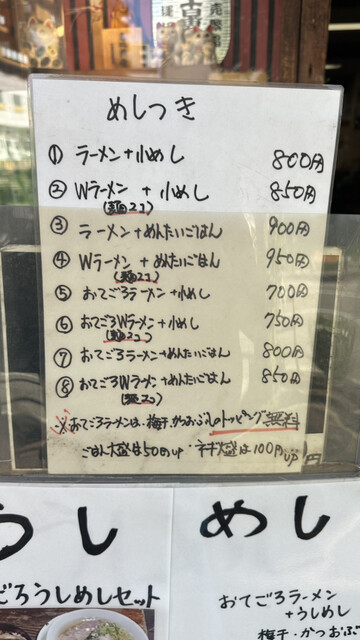 めしつき
① ラーメン+小めし 800円
② Wラーメン + 小めし 850円
(麺2コ)
③ ラーメン+めんたいごはん 900円
④ Wラーメン + めんたいごはん 950円
(麺2コ)
⑤ おてごろラーメン+小めし 700円
⑥ おてごろWラーメン+小めし 750円
(麺2コ)
⑦ おてごろラーメン+めんたいごはん 800円
⑧ おてごろWラーメン+めんたいごはん 850円
(麺2コ)
※おてごろラーメンは、梅干、かつおぶしのトッピング無料
ごはん大盛は50円up・ネギ大盛は100円up
うし
ごろうしめしセット
めし
おてごろラーメン
+うしめし
梅干・かつおぶ